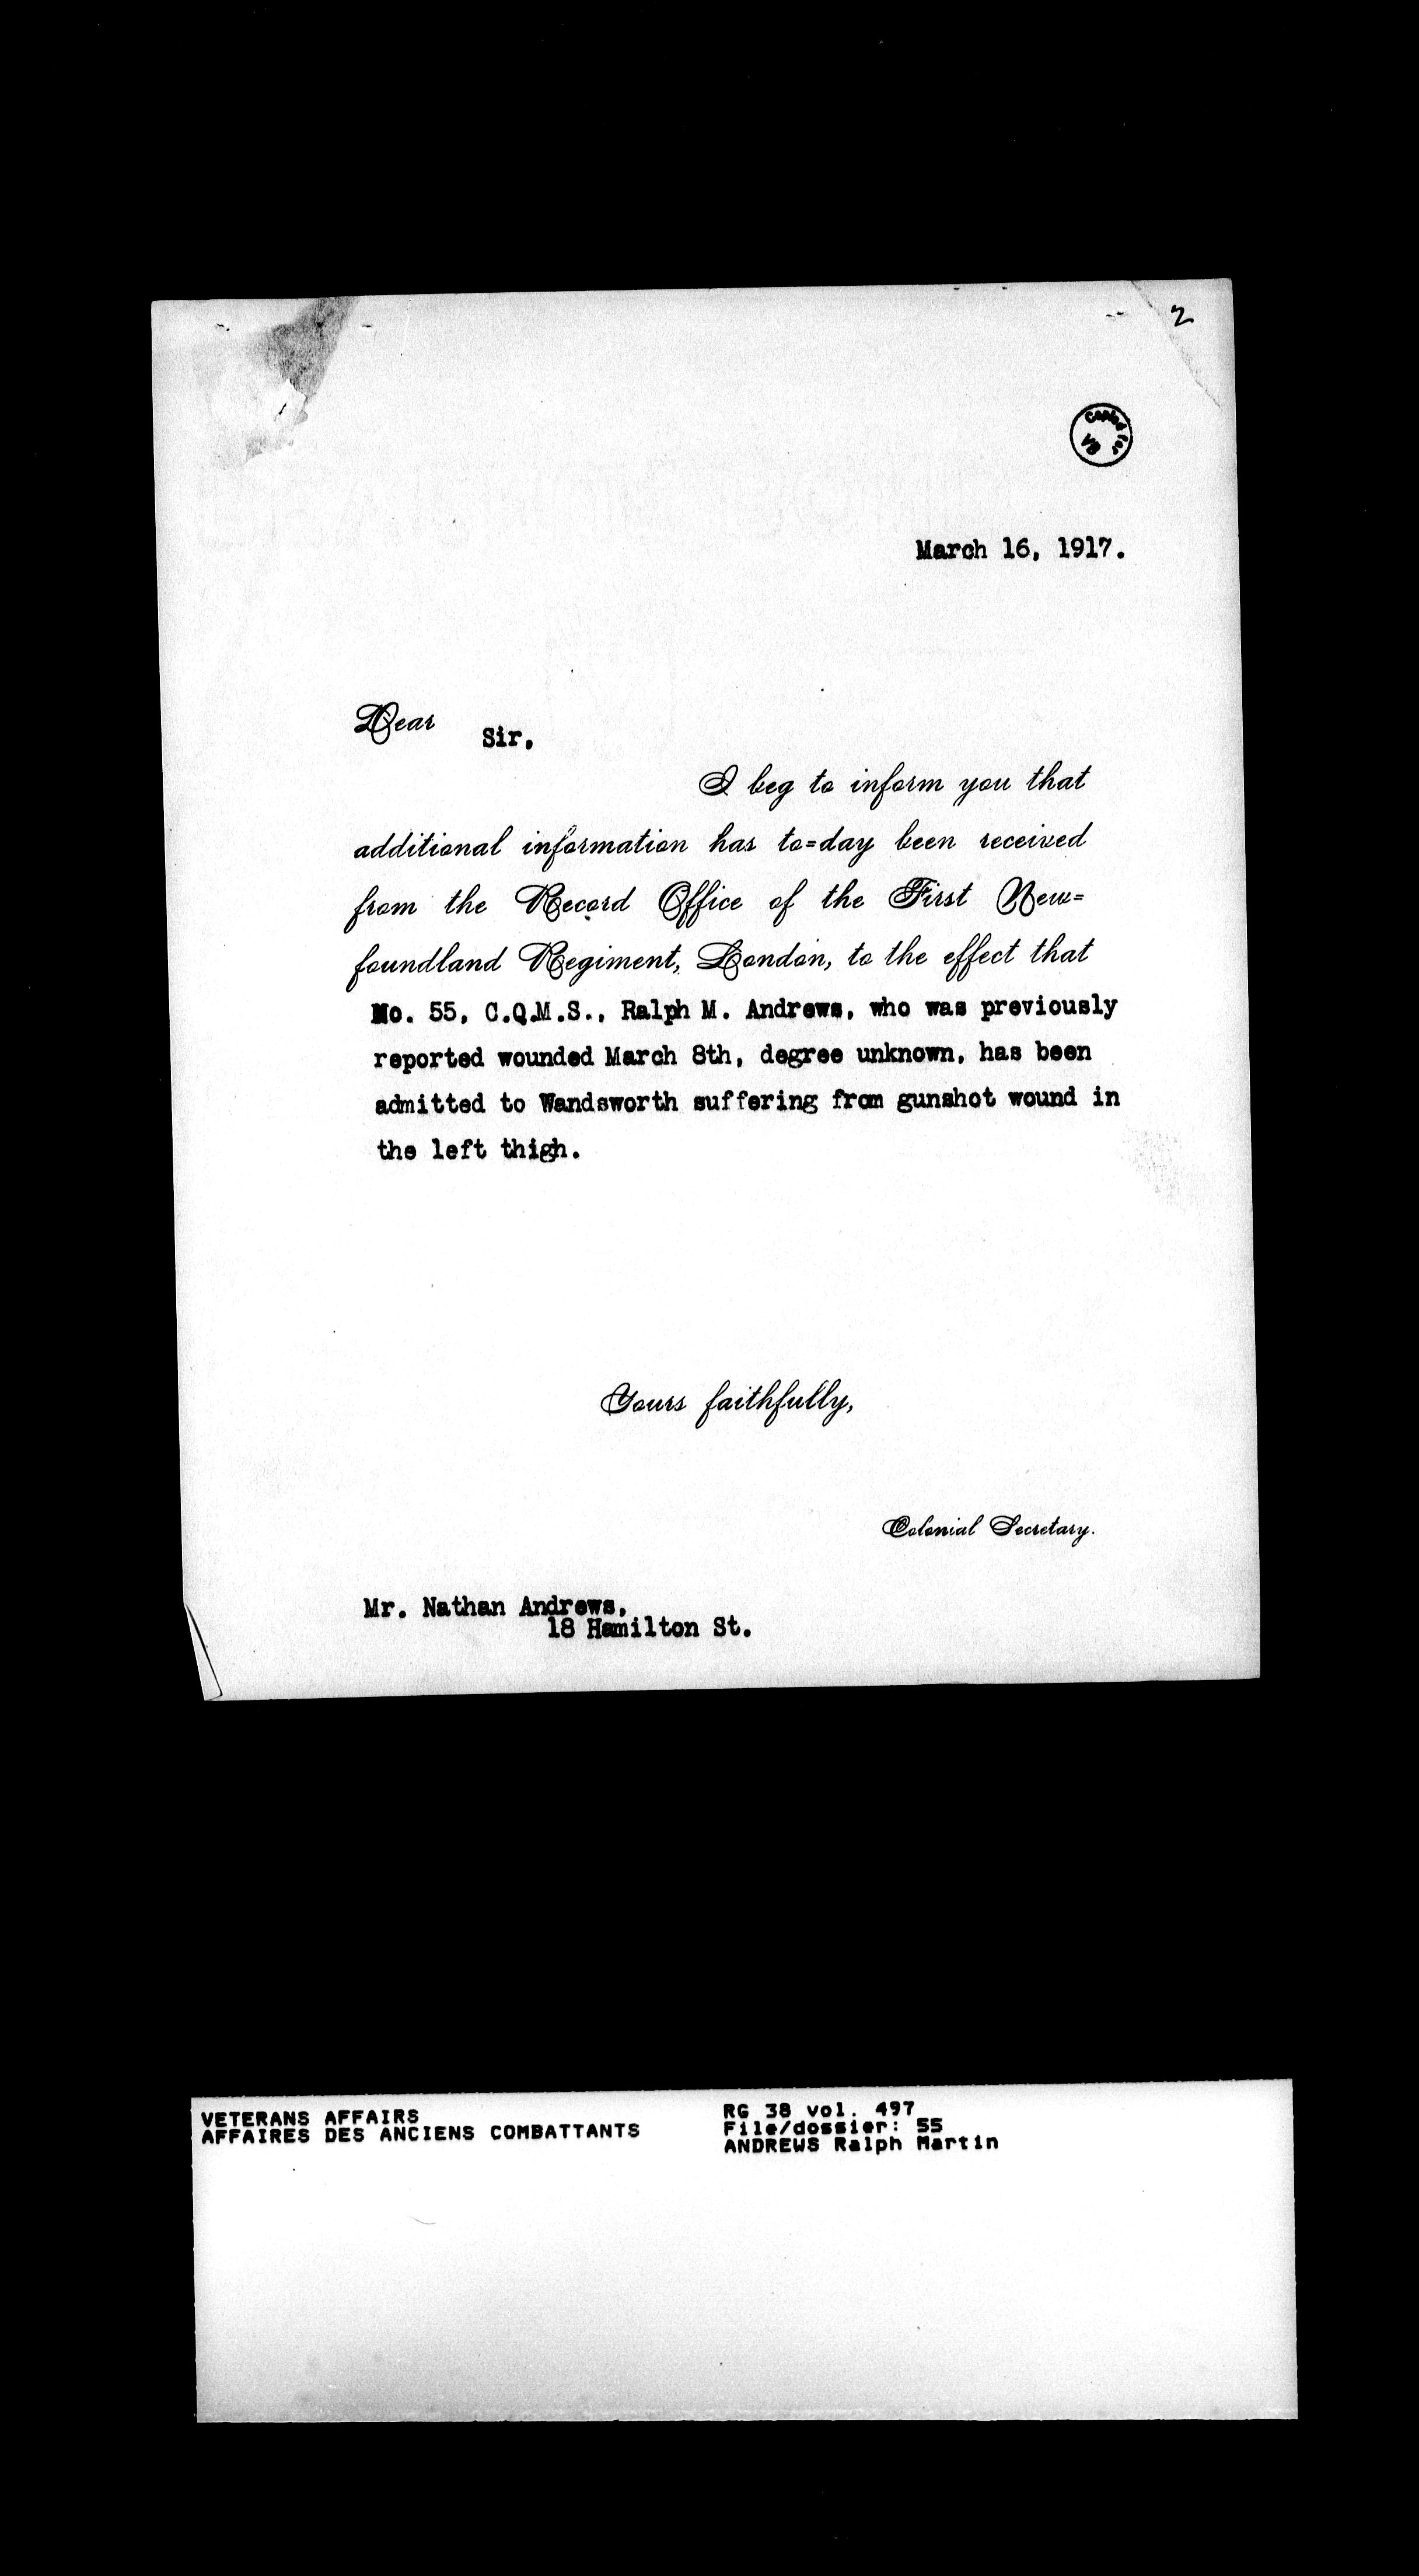 2
Copied for
March 16, 1917.
Dear Sir,
I beg to inform you that
additional information has to=day been received
from the Record Office of the First New=
foundland Regiment, London, to the effect that
No. 55, C.Q.M.S., Ralph M. Andrews, who was previously
reported wounded March 8th, degree unknown, has been
admitted to Wandsworth suffering from gunshot wound in
the left thigh.
Yours faithfully,
Colonial Secretary.
Mr. Nathan Andrews,
18 Hamilton St.
VETERANS AFFAIRS
AFFAIRES DES ANCIENS COMBATTANTS
RG 38 vol. 497
File/dossier: 55
ANDREWS Ralph Martin